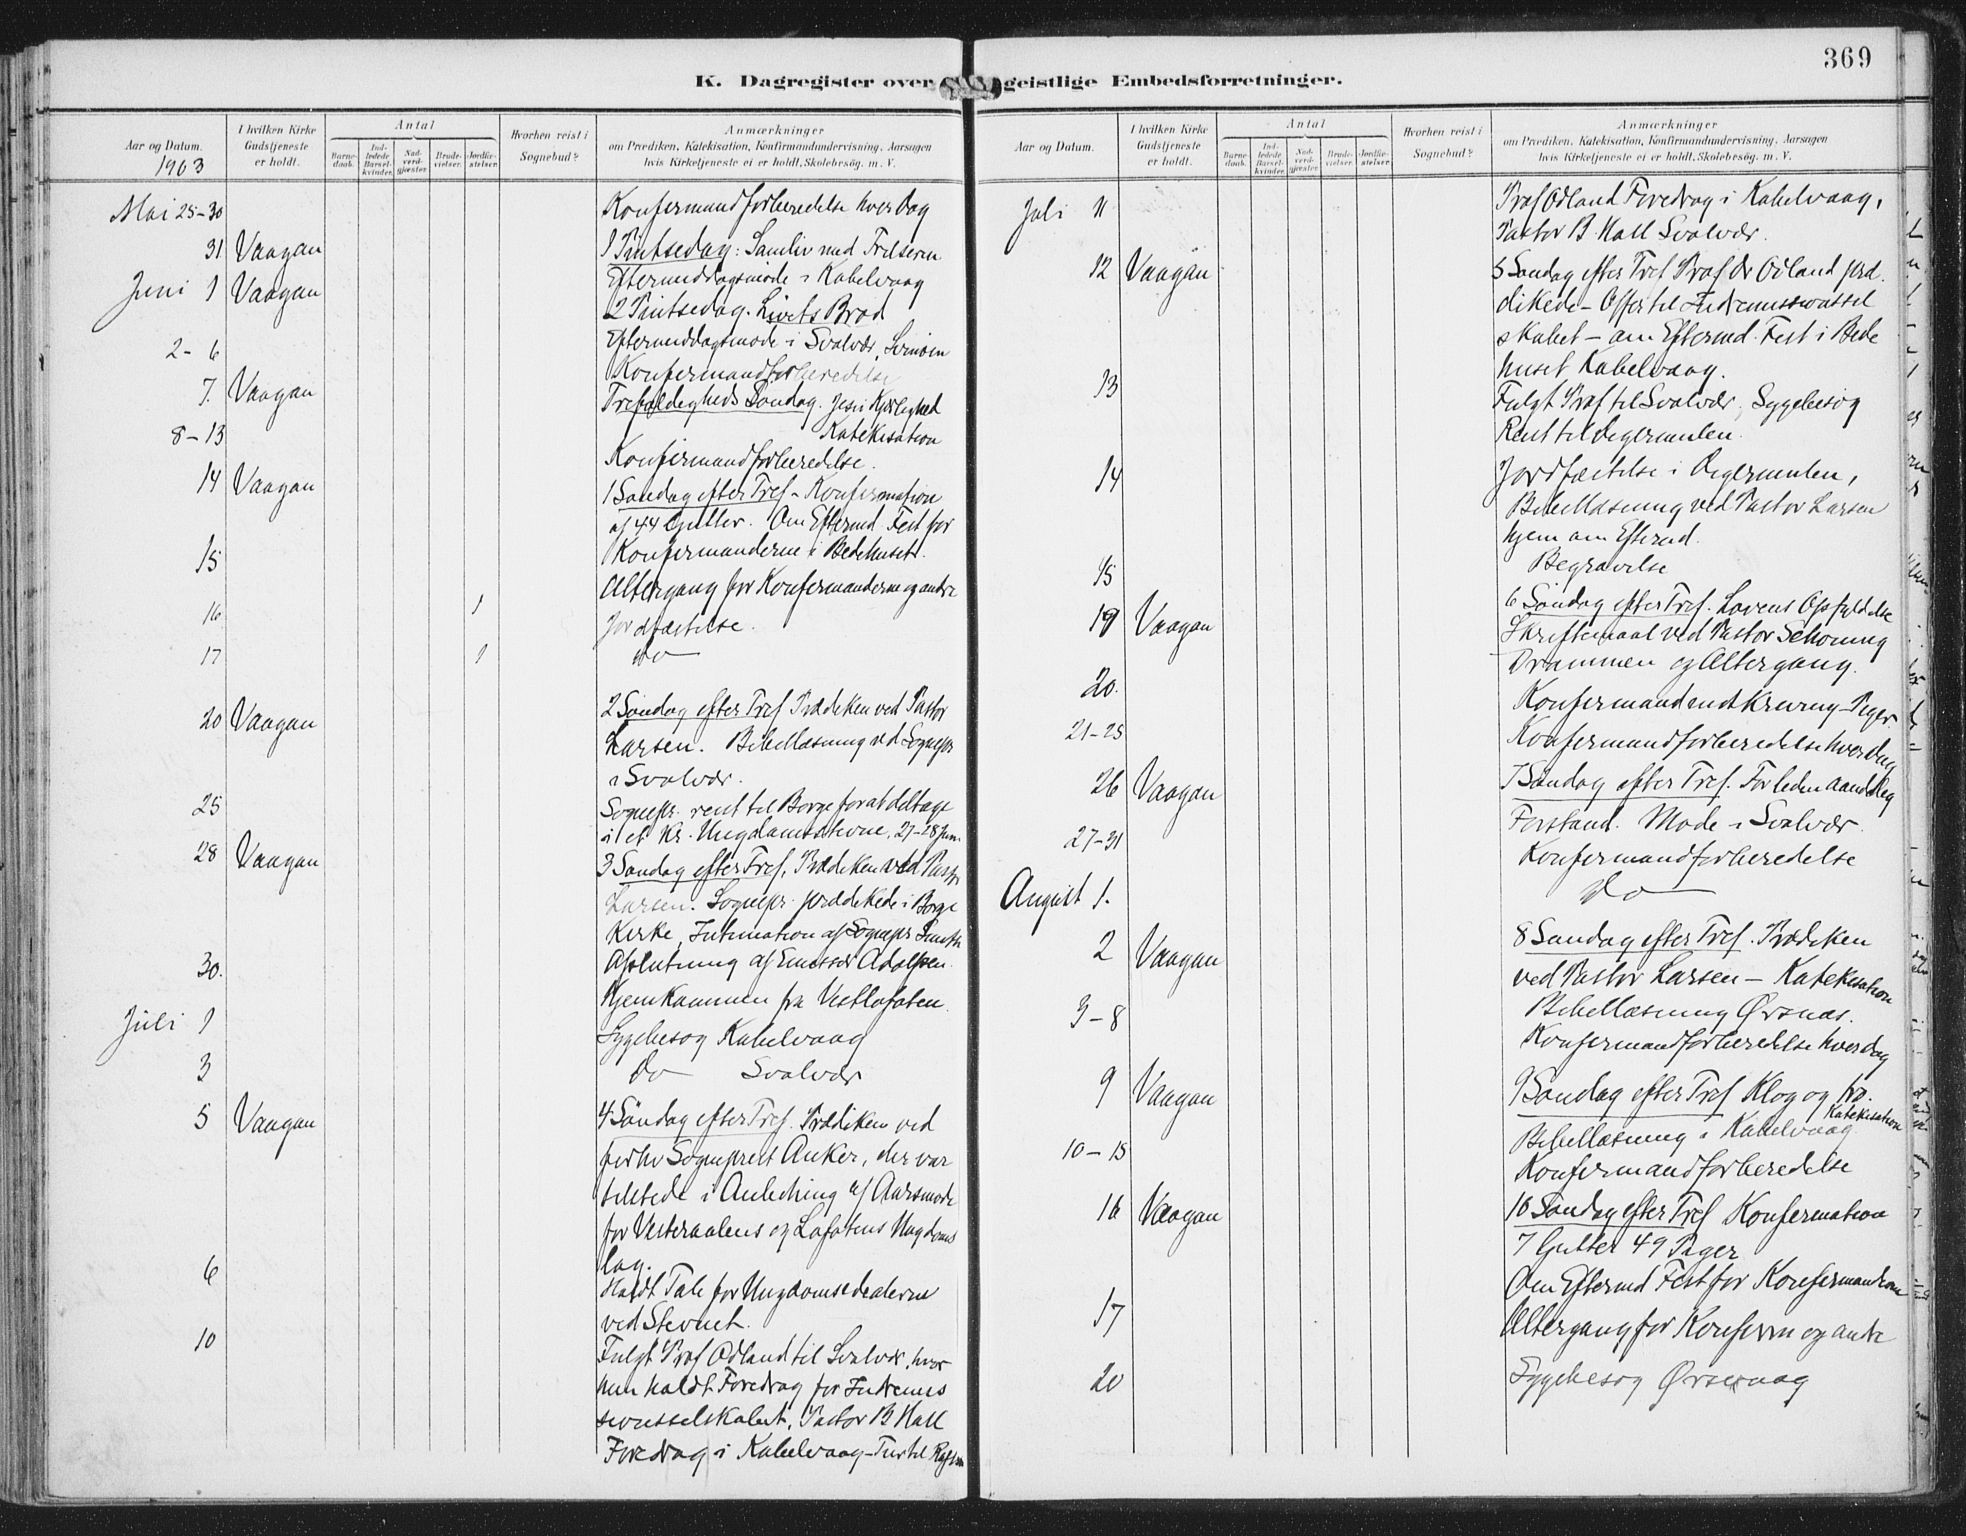 369
K. Dagregister over geistlige Embedsforretninger.
Aar og Datum.
1903
I hvilken Kirke Gudstjeneste er holdt.
Antal
Barnedaab.
Indledede Barselkvinder.
Nadverdgjæster.
Brudevielser.
Jordfæstelser.
Hvorhen reist i Sognebud?
Anmærkninger
om Prædiken, Katekisation, Konfirmandundervisning, Aarsagen
hvis Kirketjeneste ei er holdt, Skolebesög. m. V.
Mai 25-30 Konfirmandforberedelse hver Dag
31 Vaagan 1 Pintsedag: Samliv med Frelseren
Eftermiddagsmöde i Kabelvaag
Juni 1 Vaagan 2 Pintsedag. Livets Bröd
Eftermiddagsmöde i Svolvær,
2-6 Konfirmandforberedelse
7. Vaagan Trefoldigheds Söndag. Jesu Kjærlighed
Katekisation
8-13 Konfirmandforberedelse.
14 Vaagan 1 Söndag efter Tref - Konfirmation
af 44 Gutter. Om Eftermd Fest for
Konfirmanderne i Bedehuset.
15 Altergang for Konfirmanderne og andre
16 1 Jordfæstelse.
17 1 do
20 Vaagan 2 Söndag efter Tref Prædiken ved Pastor
Larsen. Bibellæsning ved Sognepr
i Svolvær.
25 Sognepr. reist til Borge for at deltage
i et Kr. Ungdomsstevne, 27-28 Jun.
28 Vaagan 3 Söndag efter Tref. Prædiken ved Pastor
Larsen. Sognepr. prædikede i Borge
Kirke, af Sognepr
Afslutning af
30. Hjemkommen fra Vestlofoten.
Juli 1 Sygebesög Kabelvaag
3 do Svolvær
5 Vaagan 4 Söndag efter Tref. Prædiken ved
forhv Sogneprest Anker, der var
tilstede i Anledning af Aarsmöde
for Vesteraalens og Lofotens Ungdoms
lag.
6 Holdt Tale for Ungdomsidealerne
ved Stevnet.
10 Fulgt Prof Odland til Svolvær, hvor
han holdt Foredrag for Indremis
sionsselskabet, Pastor B Hall
Foredrag i Kabelvaag - Tur til
Aar og Datum.
I hvilken Kirke Gudstjeneste er holdt.
Antal
Barnedaab.
Indledede Barselkvinder.
Nadverdgjæster.
Brudevielser.
Jordfæstelser.
Hvorhen reist i Sognebud?
Anmærkninger
om Prædiken, Katekisation, Konfirmandundervisning, Aarsagen
hvis Kirketjeneste ei er holdt, Skolebesög. m. V.
Juli 11 Prof Odland Foredrag i Kabelvaag,
Pastor B. Hall Svolvær.
12 Vaagan 5 Söndag efter Tref Prof Dr Odland præ
dikede - Offer til Indremissionssel
skabet - om Eftermd. Fest i Bede
huset Kabelvaag.
13 Fulgt Prof til Svolvær, Sygebesög
Reist til Digermulen.
14 Jordfæstelse i Digermulen,
Bibellæsning ved Pastor Larsen
hjem om Eftermd.
15 Begravelse
19 Vaagan 6 Söndag efter Tref. Lovens Opfyldelse
Skriftemaal ved Pastor Schöning
Drammen og Altergang.
20. Konfirmandindskrivning - Piger
21-25 Konfirmandforberedelse hver dag
26 Vaagan 7 Söndag efter Tref. Forleden aandelig
Forstand. Möde i Svolvær.
27-31 Konfirmandforberedelse
August 1. do
2 Vaagan 8 Söndag efter Tref. Prædiken
ved Pastor Larsen - Katekisation
Bibellæsning Ørsnæs.
3-8 Konfirmandforberedelse hver dag
9 Vaagan 9 Söndag efter Tref Klog og tro.
Katekisation
Bibellæsning i Kabelvaag
10-15 Konfirmandforberedelse
16 Vaagan 10 Söndag efter Tref Konfirmation
7 Gutter 49 Piger
Om Eftermd Fest for Konfirmanderne
17 Altergang for Konfirm og andre
20 Sygebesög Ørsvaag